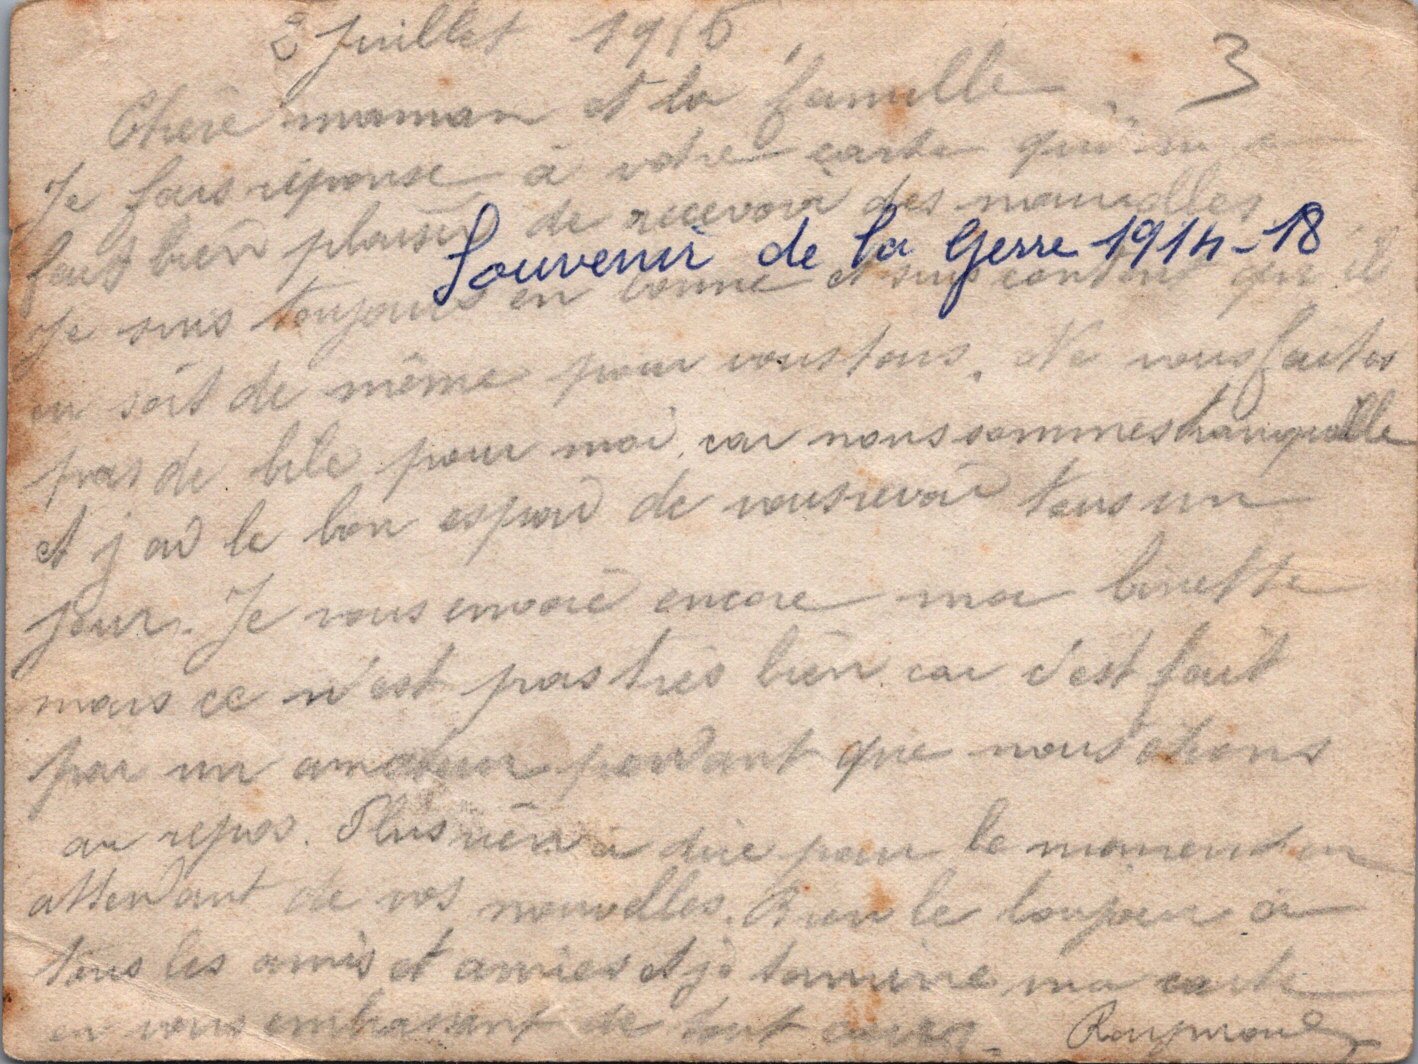 2 Juillet 1915
3
Chère maman et la famille.
Je fais réponse à votre carte qui m'a
fait bien plaisir de recevoir des nouvelles
Souvenir de la Gerre 1914-18
Je suis toujours en bonne et suis content qu'il
en soit de même pour vous tous. Ne vous faites
pas de bile pour moi car nous sommes tranquille
et j'ai le bon espoir de vous revoir tous un
jour. Je vous envoie encore ma binette
mais ce n'est pas très bien car c'est fait
par un amateur pendant que nous étions
au repos. Plus rien à dire pour le moment en
attendant de vos nouvelles. Bien le bonjour à
tous les amis et amies et je termine ma carte
en vous embrassant de tout cœur. Raymond